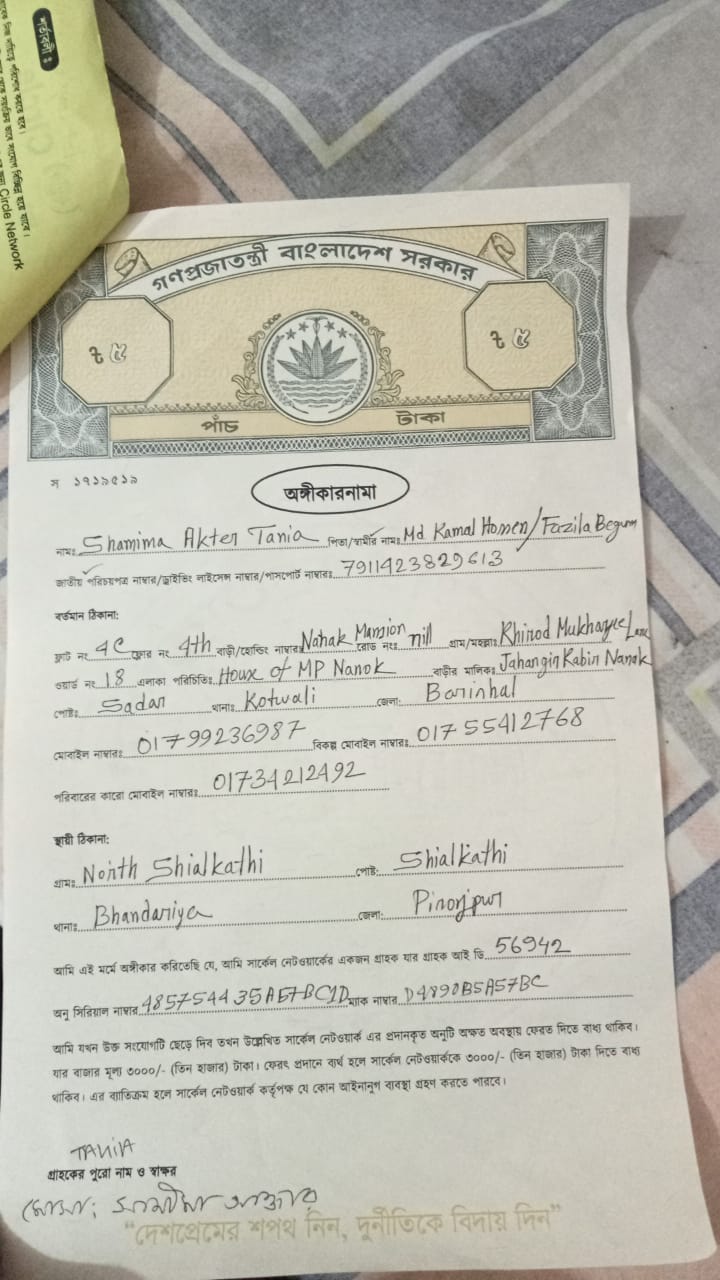 শর্তাবলী :
Circle Network
গণপ্রজাতন্ত্রী বাংলাদেশ সরকার
৳ ৫ ৳ ৫
পাঁচ টাকা
স ১৭১৯৫১৯
অঙ্গীকারনামা
নামঃ Shamima Akter Tania পিতা/স্বামীর নামঃ Md Kamal Hossen/Fazila Begum
জাতীয় পরিচয়পত্র নাম্বার/ড্রাইভিং লাইসেন্স নাম্বার/পাসপোর্ট নাম্বারঃ 7911423829613
বর্তমান ঠিকানা:
ফ্লাট নং 4C ফ্লোর নং 4th বাড়ী/হোল্ডিং নাম্বারঃ Nahak Mansion রোড নংঃ nill গ্রাম/মহল্লাঃ Khirod Mukharjee Lane
ওয়ার্ড নং 18 এলাকা পরিচিতিঃ House of MP Nanok বাড়ীর মালিকঃ Jahangir Kabir Nanak
পোষ্টঃ Sadar থানাঃ Kotwali জেলা: Barishal
মোবাইল নাম্বারঃ 01799236987 বিকল্প মোবাইল নাম্বারঃ 01755412768
পরিবারের কারো মোবাইল নাম্বারঃ 01734212492
স্থায়ী ঠিকানা:
গ্রামঃ North Shialkathi পোষ্ট: Shialkathi
থানাঃ Bhandariya জেলা: Pirojpur
আমি এই মর্মে অঙ্গীকার করিতেছি যে, আমি সার্কেল নেটওয়ার্কের একজন গ্রাহক যার গ্রাহক আই ডি 56942
অনু সিরিয়াল নাম্বার 485754435A57BC1D ম্যাক নাম্বার D4890B5A57BC
আমি যখন উক্ত সংযোগটি ছেড়ে দিব তখন উল্লেখিত সার্কেল নেটওয়ার্ক এর প্রদানকৃত অনুটি অক্ষত অবস্থায় ফেরত দিতে বাধ্য থাকিব।
যার বাজার মূল্য ৩০০০/- (তিন হাজার) টাকা। ফেরৎ প্রদানে ব্যর্থ হলে সার্কেল নেটওয়ার্ককে ৩০০০/- (তিন হাজার) টাকা দিতে বাধ্য
থাকিব। এর ব্যতিক্রম হলে সার্কেল নেটওয়ার্ক কর্তৃপক্ষ যে কোন আইনানুগ ব্যবস্থা গ্রহণ করতে পারবে।
TANIA
গ্রাহকের পুরো নাম ও স্বাক্ষর
মোসা: সামীমা আক্তার
"দেশপ্রেমের শপথ নিন, দুর্নীতিকে বিদায় দিন"